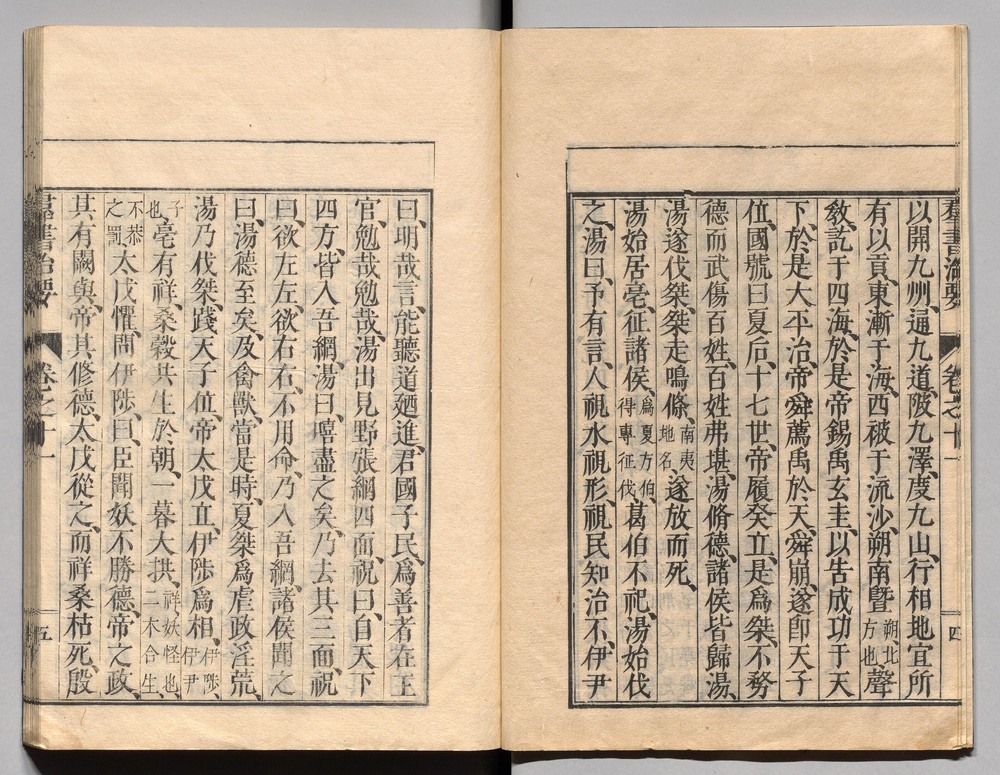 羣書治要 卷之十一 四
以開九州、通九道、陂九澤、度九山、行相地宜所
有以貢、東漸于海、西被于流沙、朔南曁朔北方也聲
敎訖于四海、於是帝錫禹玄圭、以告成功于天
下、於是大平治、帝舜薦禹於天、舜崩、遂卽天子
位、國號曰夏后、十七世、帝履癸立、是爲桀、不務
德而武傷百姓、百姓弗堪、湯脩德、諸侯皆歸湯、
湯遂伐桀、桀走鳴條、南夷地名遂放而死、
湯始居亳、征諸侯、爲夏方伯得專征伐葛伯不祀、湯始伐
之、湯曰、予有言、人視水視形、視民知治不、伊尹
曰、明哉言、能聽道廼進、君國子民、爲善者在王
官、勉哉勉哉、湯出見野張綱四面、祝曰、自天下
四方、皆入吾網、湯曰、嘻盡之矣、乃去其三面、祝
曰、欲左左、欲右右、不用命、乃入吾網、諸侯聞之
曰、湯德至矣、及禽獸、當是時、夏桀爲虐政淫荒、
湯乃伐桀、踐天子位、帝太戊立、伊陟爲相、伊陟、伊尹
子也、亳有祥、桑穀共生於朝、一暮大拱、祥妖怪也二木合生
不恭之罰太戊懼、問伊陟、曰、臣聞妖不勝德、帝之政、
其有闕與、帝其修德、太戊從之、而祥桑枯死、殷
羣書治要 卷之十一 五